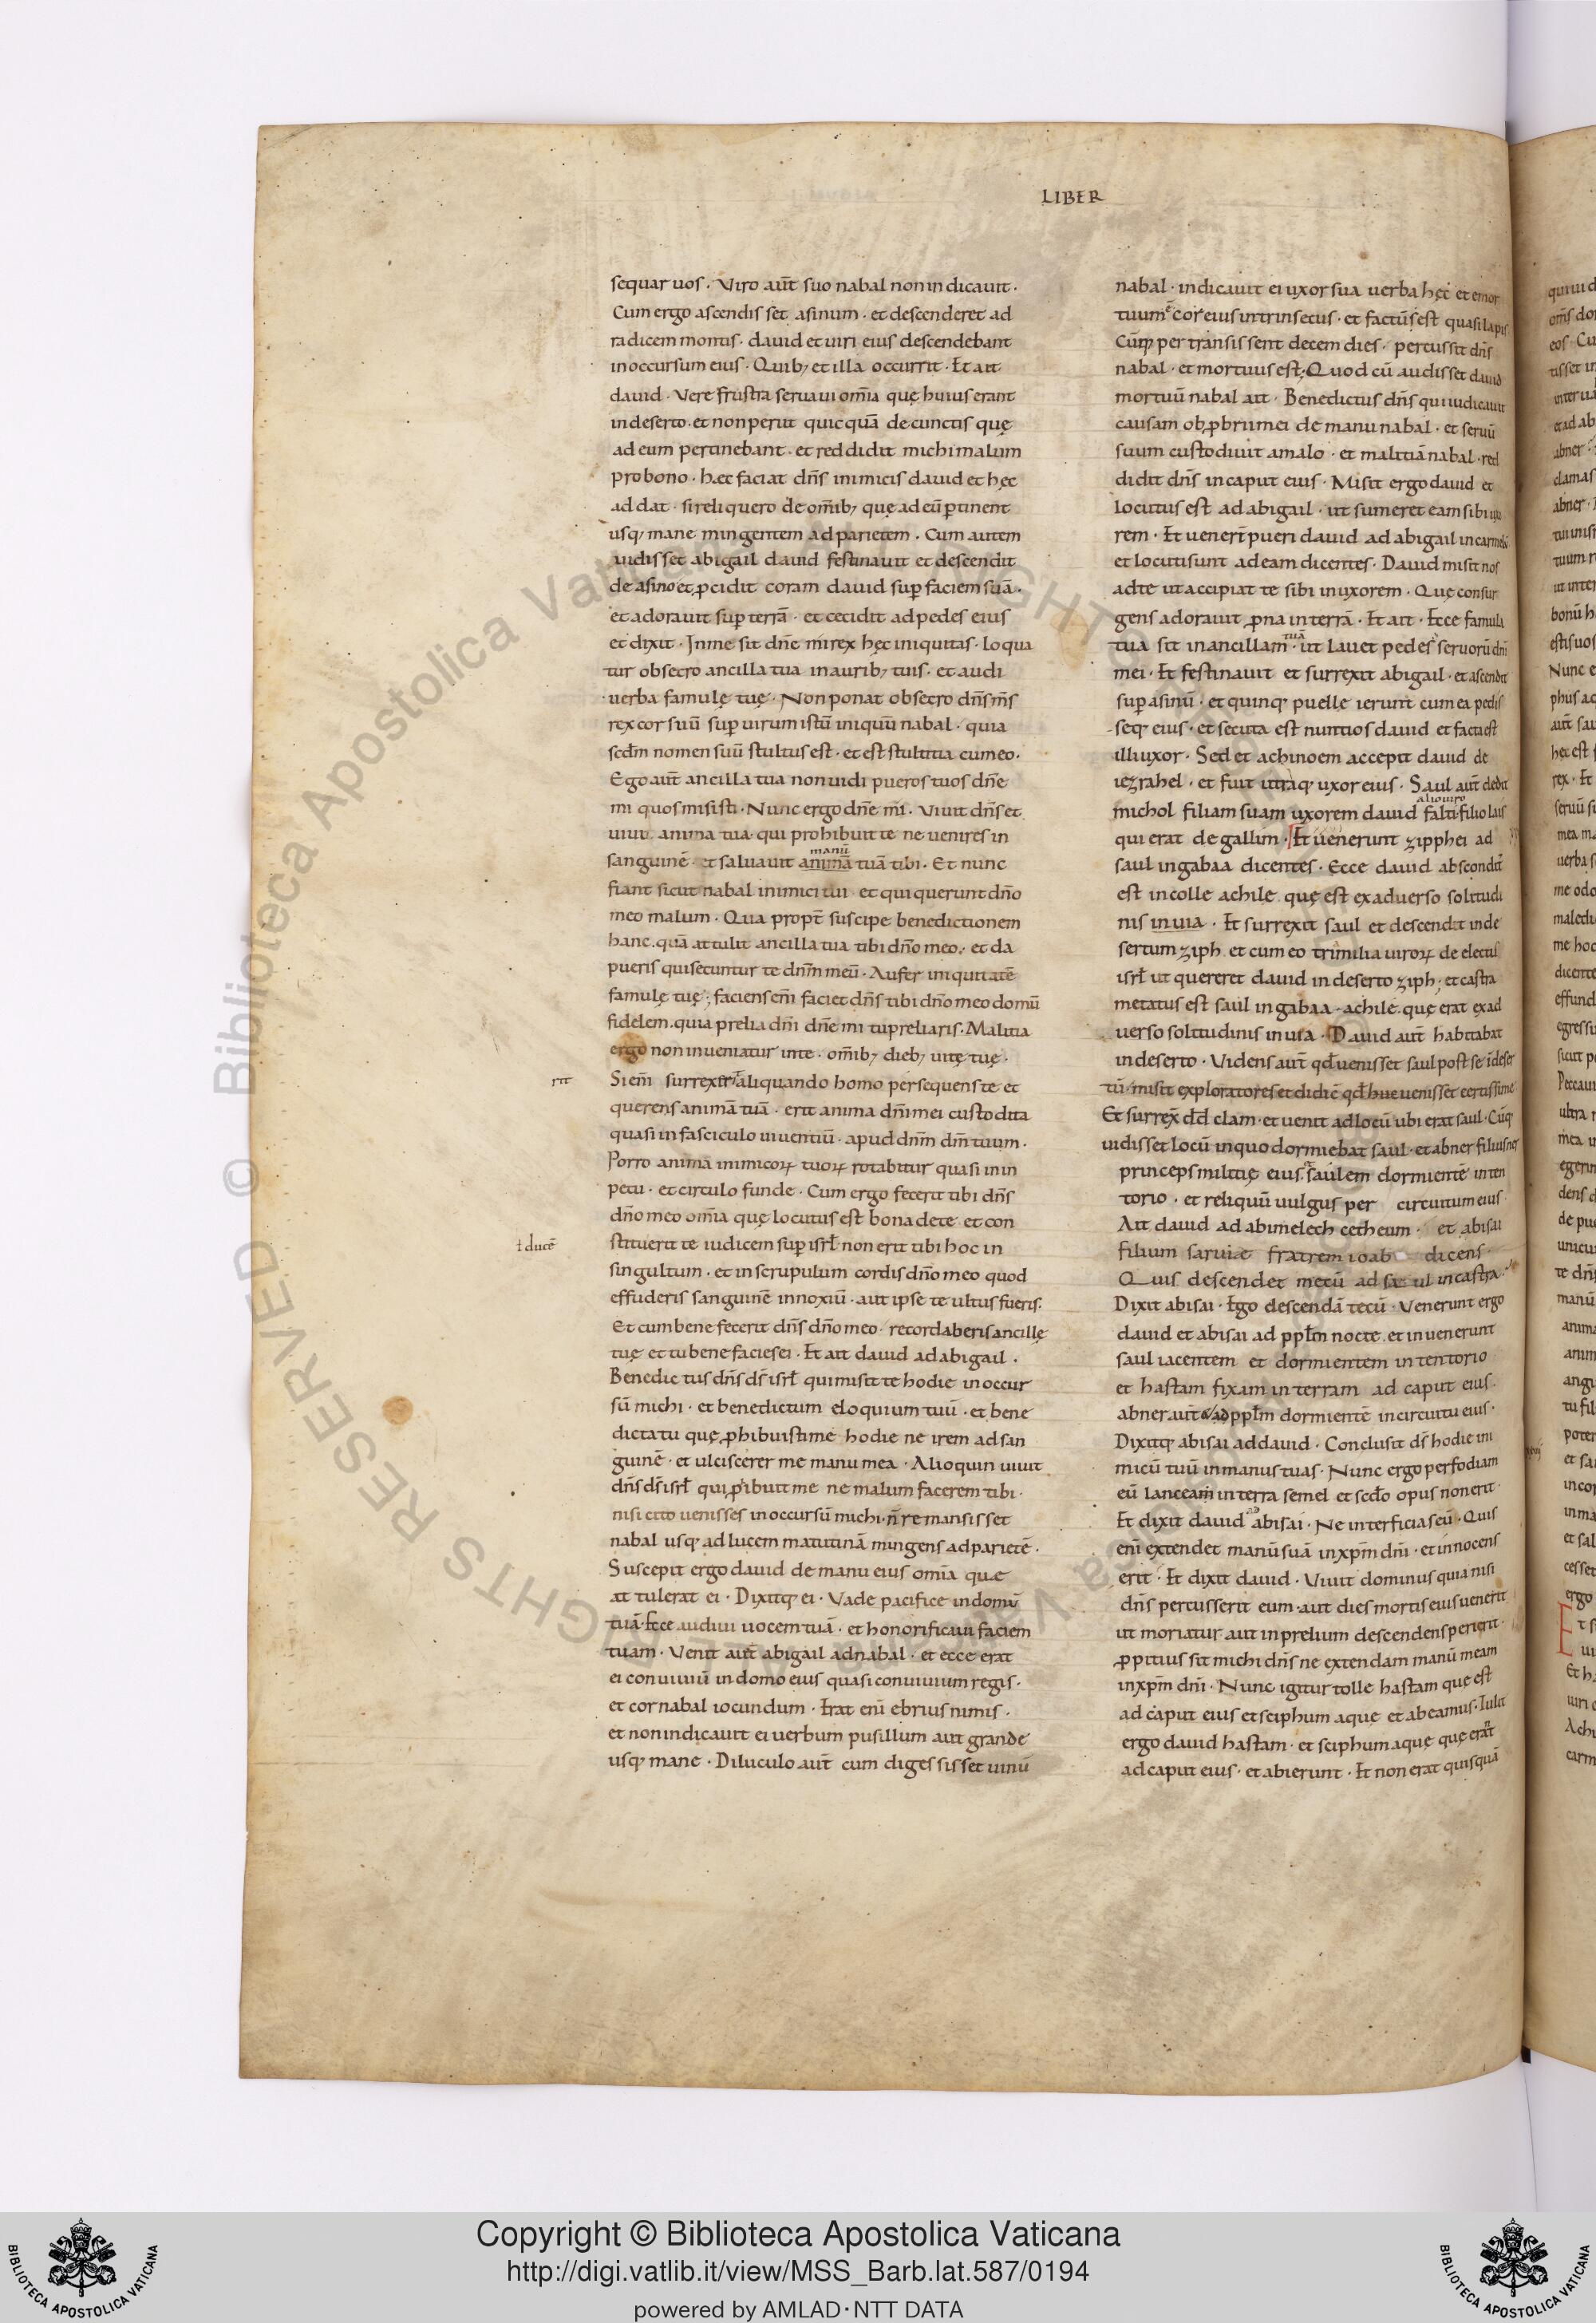 LIBER
sequar uos. Viro aūt suo nabal non indicauit.
Cum ergo ascendisset asinum. et descenderet ad
radicem montis. dauid et uiri eius descendebant
in occursum eius. Quib; et illa occurrit. Et ait
dauid. Vere frustra seruaui om̄ia quę huius erant
in deserto. et non periit quicquā de cunctis quę
ad eum pertinebant. et reddidit michi malum
pro bono. Hæc faciat dn̄s inimicis dauid et hęc
addat. si reliquero de om̄ib; quę ad eū ꝑtinent
usq; mane mingentem ad parietem. Cum autem
uidisset abigail dauid festinauit et descendit
de asino et ꝓcidit coram dauid sup̄ faciem suā.
et adorauit sup̄ terrā. et cecidit ad pedes eius
et dixit. In me sit dn̄e mi rex hęc iniquitas. loqua
tur obsecro ancilla tua in aurib; tuis. et audi
uerba famulę tuę. Non ponat obsecro dn̄s m̄s
rex cor suū sup̄ uirum istū iniquū nabal. quia
scd̄m nomen suū stultus est. et est stultitia cum eo.
Ego aūt ancilla tua non uidi pueros tuos dn̄e
mi quos misisti. Nunc ergo dn̄e mi. Viuit dn̄s et
uiuit anima tua. qui prohibuit te ne uenires in
manū
sanguinē. et saluauit animā tuā tibi. Et nunc
fiant sicut nabal inimici tui. et qui querunt dn̄o
meo malum. Qua propt̄ suscipe benedictionem
hanc. quā attulit ancilla tua tibi dn̄o meo. et da
pueris qui secuntur te dn̄m meū. Aufer iniquitatē
famulę tuę; faciens en̄i faciet dn̄s tibi dn̄o meo domū
fidelem. quia prelia dn̄i dn̄e mi tu preliaris. Malitia
ergo non inueniatur in te. om̄ib; dieb; uitę tuę.
rit
Si en̄i surrexer aliquando homo persequens te et
querens animā tuā. erit anima dn̄i mei custodita
quasi in fasciculo uiuentiū. apud dn̄m dm̄ tuum.
Porro anima inimicoꝝ tuoꝝ rotabitur quasi in in
petu. et circulo funde. Cum ergo fecerit tibi dn̄s
dn̄o meo om̄ia quę locutus est bona de te et con
ł ducē
stituerit te iudicem sup̄ isrł non erit tibi hoc in
singultum. et in scrupulum cordis dn̄o meo quod
effuderis sanguinē innoxiū. aut ipse te ultus fueris.
Et cum bene fecerit dn̄s dn̄o meo. recordaberis ancillę
tuę et tu bene facies ei. Et ait dauid ad abigail.
Benedictus dn̄s ds̄ isrł qui misit te hodie in occur
sū michi. et benedictum eloquium tuū. et bene
dicta tu quę ꝓhibuisti me hodie ne irem ad san
guinē. et ulciscerer me manu mea. Alioquin uiuit
dn̄s ds̄ isrł qui ꝓibuit me ne malum facerem tibi.
nisi cito uenisses in occursū michi. n̄ remansisset
nabal usq; ad lucem matutinā mingens ad parietē.
Suscepit ergo dauid de manu eius om̄ia quæ
attulerat ei. Dixitq; ei. Vade pacifice in domū
tuā. Ecce audiui uocem tuā. et honorificaui faciem
tuam. Venit aūt abigail ad nabal. et ecce erat
ei conuiuiū in domo eius quasi conuiuium regis.
et cor nabal iocundum. Erat en̄i ebrius nimis.
et non indicauit ei uerbum pusillum aut grande
usq; mane. Diluculo aūt cum digessisset uinū
nabal. indicauit ei uxor sua uerba hęc et emor
tuum ē cor eius intrinsecus. et factūs est quasi lapis
Cūq; pertransissent decem dies. percussit dn̄s
nabal. et mortuus est; Quod cū audisset dauid
mortuū nabal ait. Benedictus dn̄s qui iudicauit
causam obꝓbrii mei de manu nabal. et seruū
suum custodiuit a malo. et malitiā nabal red
didit dn̄s in caput eius. Misit ergo dauid et
locutus est ad abigail. ut sumeret eam sibi uxo
rem. Et uener̄t pueri dauid ad abigail in carmelū
et locuti sunt ad eam dicentes. Dauid misit nos
ad te ut accipiat te sibi in uxorem. Quę consur
gens adorauit ꝓna in terrā. Et ait. Ecce famula
tuā
tua sit in ancillam. ut lauet pedes seruorū dn̄i
mei. Et festinauit et surrexit abigail. et ascendit
sup̄ asinū. et quinq; puelle ierunt cum ea pedis
seq; eius. et secuta est nuntios dauid et facta est
illi uxor. Sed et achinoem accepit dauid de
iezrahel. et fuit utraq; uxor eius. Saul aūt dedit
alio uiro
michol filiam suam uxorem dauid falti filio lais
qui erat de gallim. Et uenerunt zipphei ad
saul in gabaa dicentes. Ecce dauid absconditꝰ
est in colle achile quę est ex aduerso solitudi
nis in uia. Et surrexit saul et descendit in de
sertum ziph. et cum eo tria milia uiroꝝ de electis
isrł ut quereret dauid in deserto ziph; et castra
metatus est saul in gabaa achile. quę erat ex ad
uerso solitudinis in uia. Dauid aūt habitabat
in deserto. Videns aūt qd̄ uenisset saul post se ī deser
tū. misit exploratores et didic̄ qd̄ huc uenisset certissime
Et surrex̄ dd̄ clam. et uenit ad locū ubi erat saul. Cūq;
uidisset locū in quo dormiebat saul. et abner filius ner
princeps militię eius. saulem dormientē in ten
torio. et reliquū uulgus per circuitum eius
Ait dauid ad abimelech cetheum. et abisai
filium saruiæ fratrem ioab dicens.
Quis descendet mecū ad saul in castra.
Dixit abisai. Ego descendā tecū. Venerunt ergo
dauid et abisai ad pplm̄ nocte. et inuenerunt
saul iacentem et dormientem in tentorio
et hastam fixam in terram ad caput eius.
abner aūt & pplm̄ dormientē in circuitu eius.
Dixitq; abisai ad dauid. Conclusit ds̄ hodie ini
micū tuū in manus tuas. Nunc ergo perfodiam
eū lanceam in terra semel et scd̄o opus non erit.
Et dixit dauid ad abisai. Ne interficias eū. Quis
en̄i extendet manū suā in xp̄m dn̄i. et innocens
erit. Et dixit dauid. Viuit dominus quia nisi
dn̄s percusserit eum. aut dies mortis eius uenerit
ut moriatur aut in prelium descendens perierit.
ꝓpitius sit michi dn̄s ne extendam manū meam
in xp̄m dn̄i. Nunc igitur tolle hastam que est
ad caput eius et sciphum aque et abeamus. Tulit
ergo dauid hastam. et sciphum aquę quę erāt
ad caput eius. et abierunt. Et non erat quisquā
Copyright © Biblioteca Apostolica Vaticana
http://digi.vatlib.it/view/MSS_Barb.lat.587/0194
powered by AMLAD·NTT DATA